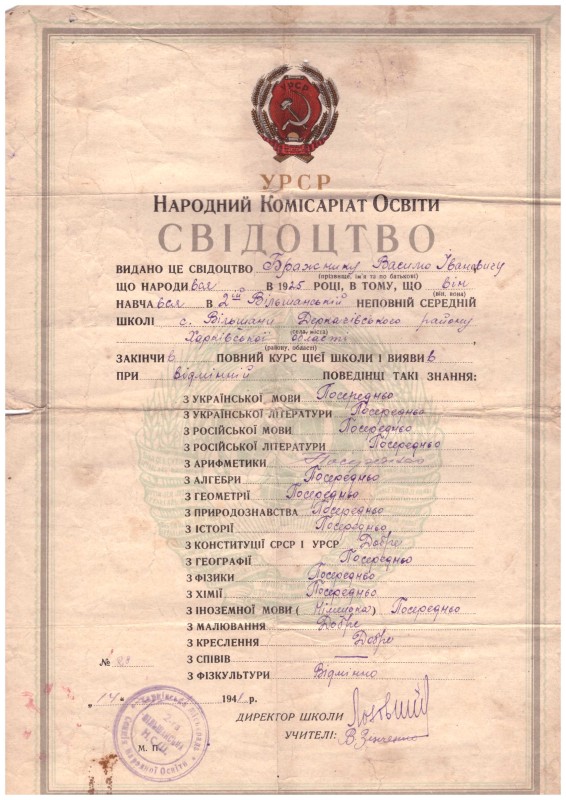 УРСР
УРСР
НАРОДНИЙ КОМІСАРІАТ ОСВІТИ
СВІДОЦТВО
ВИДАНО ЦЕ СВІДОЦТВО Бражнику Василю Івановичу
(прізвище, ім'я та по батькові)
ЩО НАРОДИвся В 1925 РОЦІ, В ТОМУ, ЩО він
(він, вона)
НАВЧАвся В 2ій Вільшанській НЕПОВНІЙ СЕРЕДНІЙ
ШКОЛІ с. Вільшани Деркачівського району
(села, міста)
Харківської області
(району, області)
ЗАКІНЧИв ПОВНИЙ КУРС ЦІЄЇ ШКОЛИ І ВИЯВИв
ПРИ відмінній ПОВЕДІНЦІ ТАКІ ЗНАННЯ:
З УКРАЇНСЬКОЇ МОВИ Посередньо
З УКРАЇНСЬКОЇ ЛІТЕРАТУРИ Посередньо
З РОСІЙСЬКОЇ МОВИ Посередньо
З РОСІЙСЬКОЇ ЛІТЕРАТУРИ Посередньо
З АРИФМЕТИКИ Посередньо
З АЛГЕБРИ Посередньо
З ГЕОМЕТРІЇ Посередньо
З ПРИРОДОЗНАВСТВА Посередньо
З ІСТОРІЇ Посередньо
З КОНСТИТУЦІЇ СРСР І УРСР Добре
З ГЕОГРАФІЇ Посередньо
З ФІЗИКИ Посередньо
З ХІМІЇ Посередньо
З ІНОЗЕМНОЇ МОВИ (Німецька) Посередньо
З МАЛЮВАННЯ Добре
З КРЕСЛЕННЯ Добре
З СПІВІВ —
З ФІЗКУЛЬТУРИ Відмінно
№ 28
„14" 1941 р.
ДИРЕКТОР ШКОЛИ
УЧИТЕЛІ:
М. П.
Народної Освіти
2-га
Н.С.Ш.